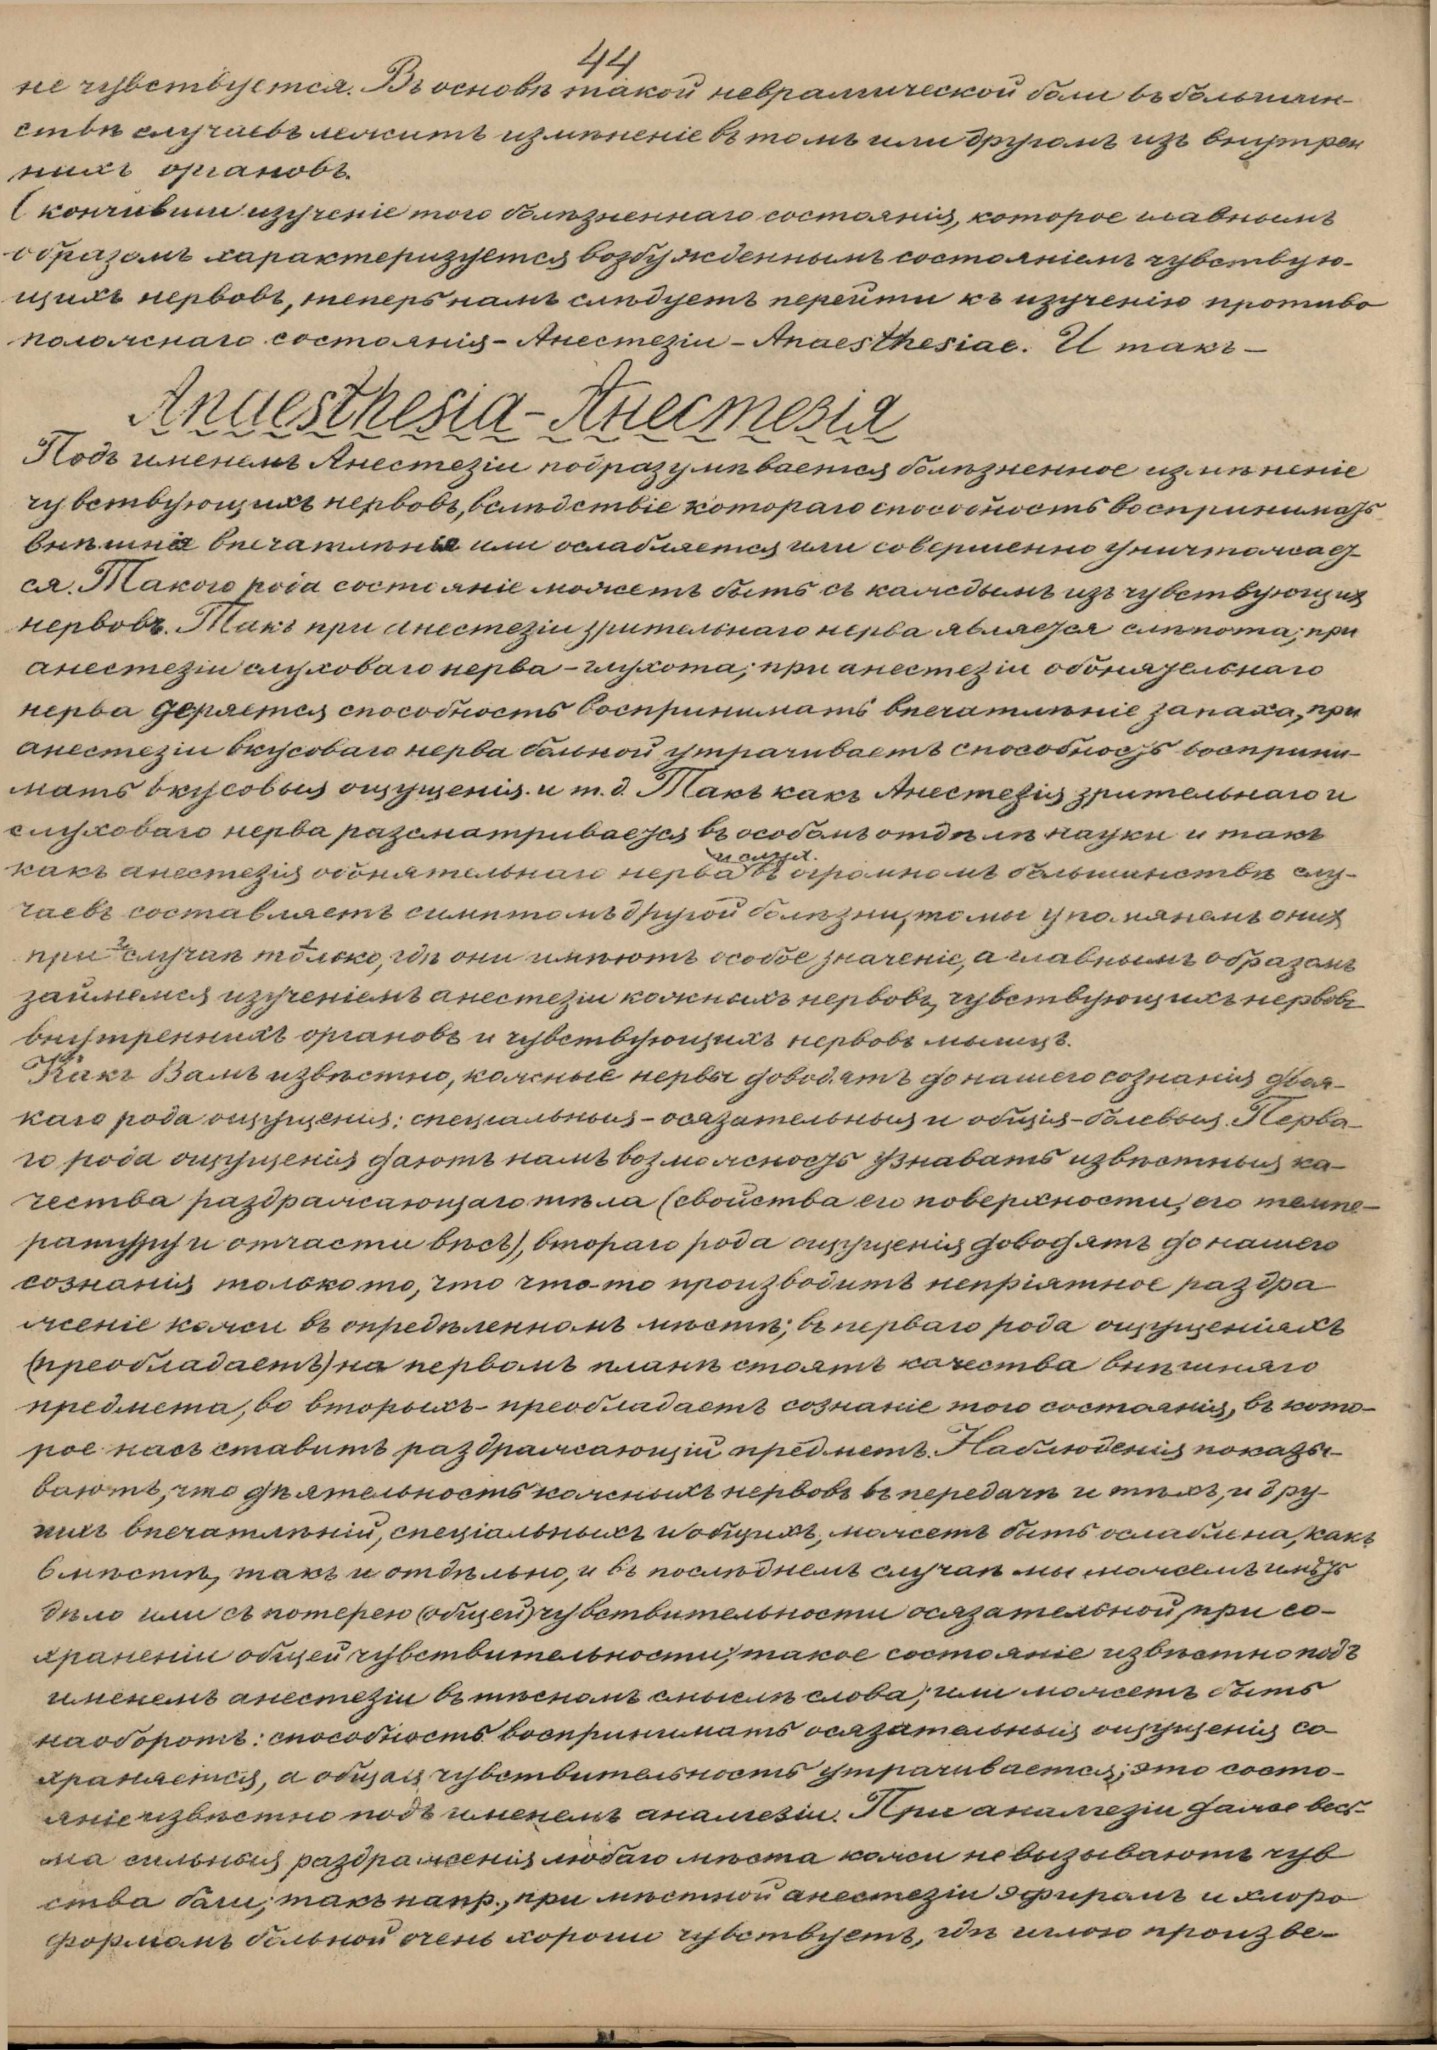 44
не чувствуется. Въ основѣ такой невралгической боли въ большин-
ствѣ случаевъ лежитъ измѣненіе въ томъ или другомъ изъ внутрен
нихъ органовъ.
Окончивши изученіе того болѣзненнаго состоянія, которое главнымъ
образомъ характеризуется возбужденнымъ состояніемъ чувствую-
щихъ нервовъ, теперь намъ слѣдуетъ перейти къ изученію противо
положнаго состоянія - Анестезіи - Anaesthesiae. И такъ -
Anaesthesia - Анестезія
Подъ именемъ Анестезіи подразумѣвается болѣзненное измѣненіе
чувствующихъ нервовъ, вслѣдствіе котораго способность воспринимать
внѣшнія впечатлѣнія или ослабляется или совершенно уничтожает-
ся. Такого рода состояніе можетъ быть съ каждымъ изъ чувствующихъ
нервовъ. Такъ при анестезіи зрительнаго нерва является слѣпота; при
анестезіи слуховаго нерва - глухота; при анестезіи обонятельнаго
нерва теряется способность воспринимать впечатлѣніе запаха, при
анестезіи вкусоваго нерва больной утрачиваетъ способность восприни-
мать вкусовыя ощущенія и т. д. Такъ какъ Анестезія зрительнаго и
слуховаго нерва разсматривается въ особомъ отдѣлѣ науки и такъ
какъ анестезія обонятельнаго нерва въ огромномъ большинствѣ слу-
чаевъ составляетъ симптомъ другой болѣзни, то мы упомянемъ о нихъ
при случаѣ только, гдѣ они имѣютъ особое значеніе, а главнымъ образомъ
займемся изученіемъ анестезіи кожныхъ нервовъ, чувствующихъ нервовъ
внутреннихъ органовъ и чувствующихъ нервовъ мышцъ.
Какъ Вамъ извѣстно, кожные нервы доводятъ до нашего сознанія двоя-
каго рода ощущенія: спеціальныя - осязательныя и общія - болевыя. Перва-
го рода ощущенія даютъ намъ возможность узнавать извѣстныя ка-
чества раздражающаго тѣла (свойства его поверхности, его темпе-
ратуру и отчасти вѣсъ), втораго рода ощущенія доводятъ до нашего
сознанія только то, что что-то производитъ непріятное раздра
женіе кожи въ опредѣленномъ мѣстѣ; въ перваго рода ощущеніяхъ
(преобладаетъ) на первомъ планѣ стоятъ качества внѣшняго
предмета, во вторыхъ - преобладаетъ сознаніе того состоянія, въ кото-
рое насъ ставитъ раздражающій предметъ. Наблюденія показы-
ваютъ, что дѣятельность кожныхъ нервовъ въ передачѣ и тѣхъ, и дру-
гихъ впечатлѣній, спеціальныхъ и общихъ, можетъ быть ослаблена, какъ
вмѣстѣ, такъ и отдѣльно, и въ послѣднемъ случаѣ мы можемъ имѣть
дѣло или съ потерею (общей) чувствительности осязательной, при со-
храненіи общей чувствительности; такое состояніе извѣстно подъ
именемъ анестезіи въ тѣсномъ смыслѣ слова; или можетъ быть
наоборотъ: способность воспринимать осязательныя ощущенія со-
храняется, а общая чувствительность утрачивается; это состо-
яніе извѣстно подъ именемъ аналгезіи. При аналгезіи даже весь-
ма сильныя раздраженія любаго мѣста кожи не вызываютъ чув
ства боли; такъ напр., при мѣстной анестезіи эфиромъ и хлоро
формомъ больной очень хорошо чувствуетъ, гдѣ иглою произве-